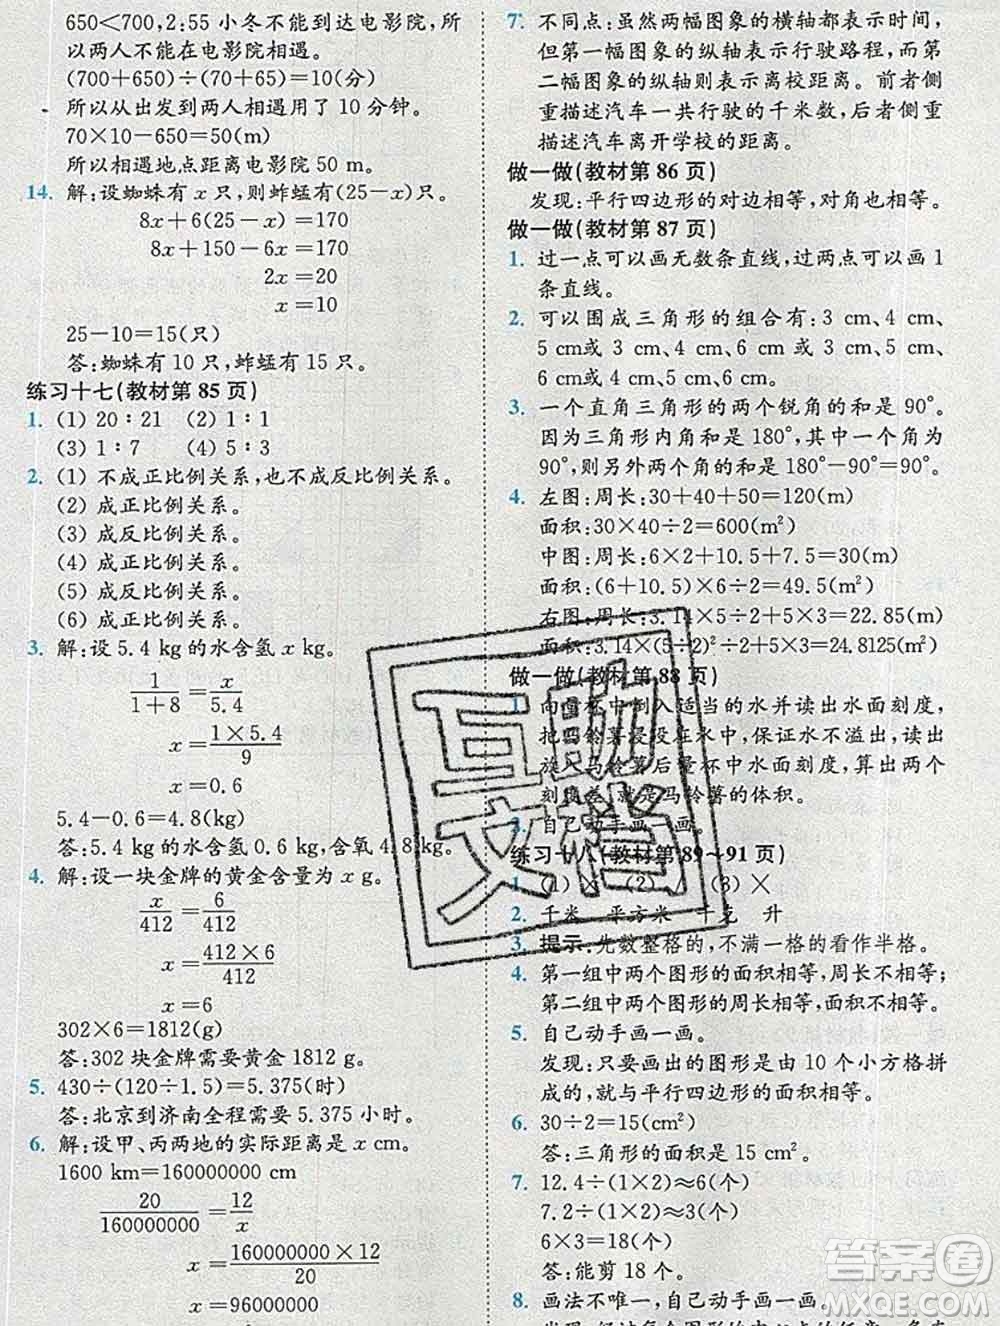 650<700,2:55 小冬不能到达电影院,所
以两人不能在电影院相遇。
(700+650)÷(70+65)=10(分)
所以从出发到两人相遇用了 10 分钟。
70×10-650=50(m)
所以相遇地点距离电影院 50 m。
14. 解:设蜘蛛有 x 只,则蚱蜢有(25-x)只。
8x+6(25-x)=170
8x+150-6x=170
2x=20
x=10
25-10=15(只)
答:蜘蛛有 10 只,蚱蜢有 15 只。
练习十七(教材第 85 页)
1. (1) 20∶21 (2) 1∶1
(3) 1∶7 (4) 5∶3
2. (1) 不成正比例关系,也不成反比例关系。
(2) 成正比例关系。
(3) 成反比例关系。
(4) 成正比例关系。
(5) 成反比例关系。
(6) 成正比例关系。
3. 解:设 5.4 kg 的水含氢 x kg。
1/(1+8)=x/5.4
x=(1×5.4)/9
x=0.6
5.4-0.6=4.8(kg)
答:5.4 kg 的水含氢 0.6 kg,含氧 4.8 kg。
4. 解:设一块金牌的黄金含量为 x g。
x/412=6/412
x=(412×6)/412
x=6
302×6=1812(g)
答:302 块金牌需要黄金 1812 g。
5. 430÷(120÷1.5)=5.375(时)
答:北京到济南全程需要 5.375 小时。
6. 解:设甲、丙两地的实际距离是 x cm。
1600 km=160000000 cm
20/160000000=12/x
x=(160000000×12)/20
x=96000000
7. 不同点:虽然两幅图象的横轴都表示时间,
但第一幅图象的纵轴表示行驶路程,而第
二幅图象的纵轴则表示离校距离。前者侧
重描述汽车一共行驶的千米数,后者侧重
描述汽车离开学校的距离。
做一做(教材第 86 页)
发现:平行四边形的对边相等,对角也相等。
做一做(教材第 87 页)
1. 过一点可以画无数条直线,过两点可以画 1
条直线。
2. 可以围成三角形的组合有:3 cm、4 cm、
5 cm或 3 cm、4 cm、6 cm或 4 cm、5 cm、
6 cm或 3 cm、5 cm、6 cm。
3. 一个直角三角形的两个锐角的和是 90°。
因为三角形内角和是 180°,其中一个角为
90°,则另外两个角的和是 180°-90°=90°。
4. 左图:周长:30+40+50=120(m)
面积:30×40÷2=600(m²)
中图:周长:6×2+10.5+7.5=30(m)
面积:(6+10.5)×6÷2=49.5(m²)
右图:周长:3.14×5÷2+5+5×3=22.85(m)
面积:3.14×(5÷2)²÷2+5×3=24.8125(m²)
做一做(教材第 88 页)
1. 向量杯中倒入适当的水并读出水面刻度,
把马铃薯浸没在水中,保证水不溢出,读出
放入马铃薯后量杯中水面刻度,算出两个
刻度差,就是马铃薯的体积。
2. 自己动手画一画。
练习十八(教材第 89~91 页)
1. (1) × (2) × (3) ×
2. 千米 平方米 千克 升
3. 提示:先数整格的,不满一格的看作半格。
4. 第一组中两个图形的面积相等,周长不相等;
第二组中两个图形的周长相等,面积不相等。
5. 自己动手画一画。
发现:只要画出的图形是由 10 个小方格拼
成的,就与平行四边形的面积相等。
6. 30÷2=15(cm²)
答:三角形的面积是 15 cm²。
7. 12.4÷(1×2)≈6(个)
7.2÷(1×2)≈3(个)
6×3=18(个)
答:能剪 18 个。
8. 画法不唯一,自己动手画一画。
互助文档
答案圈
MXQE.COM